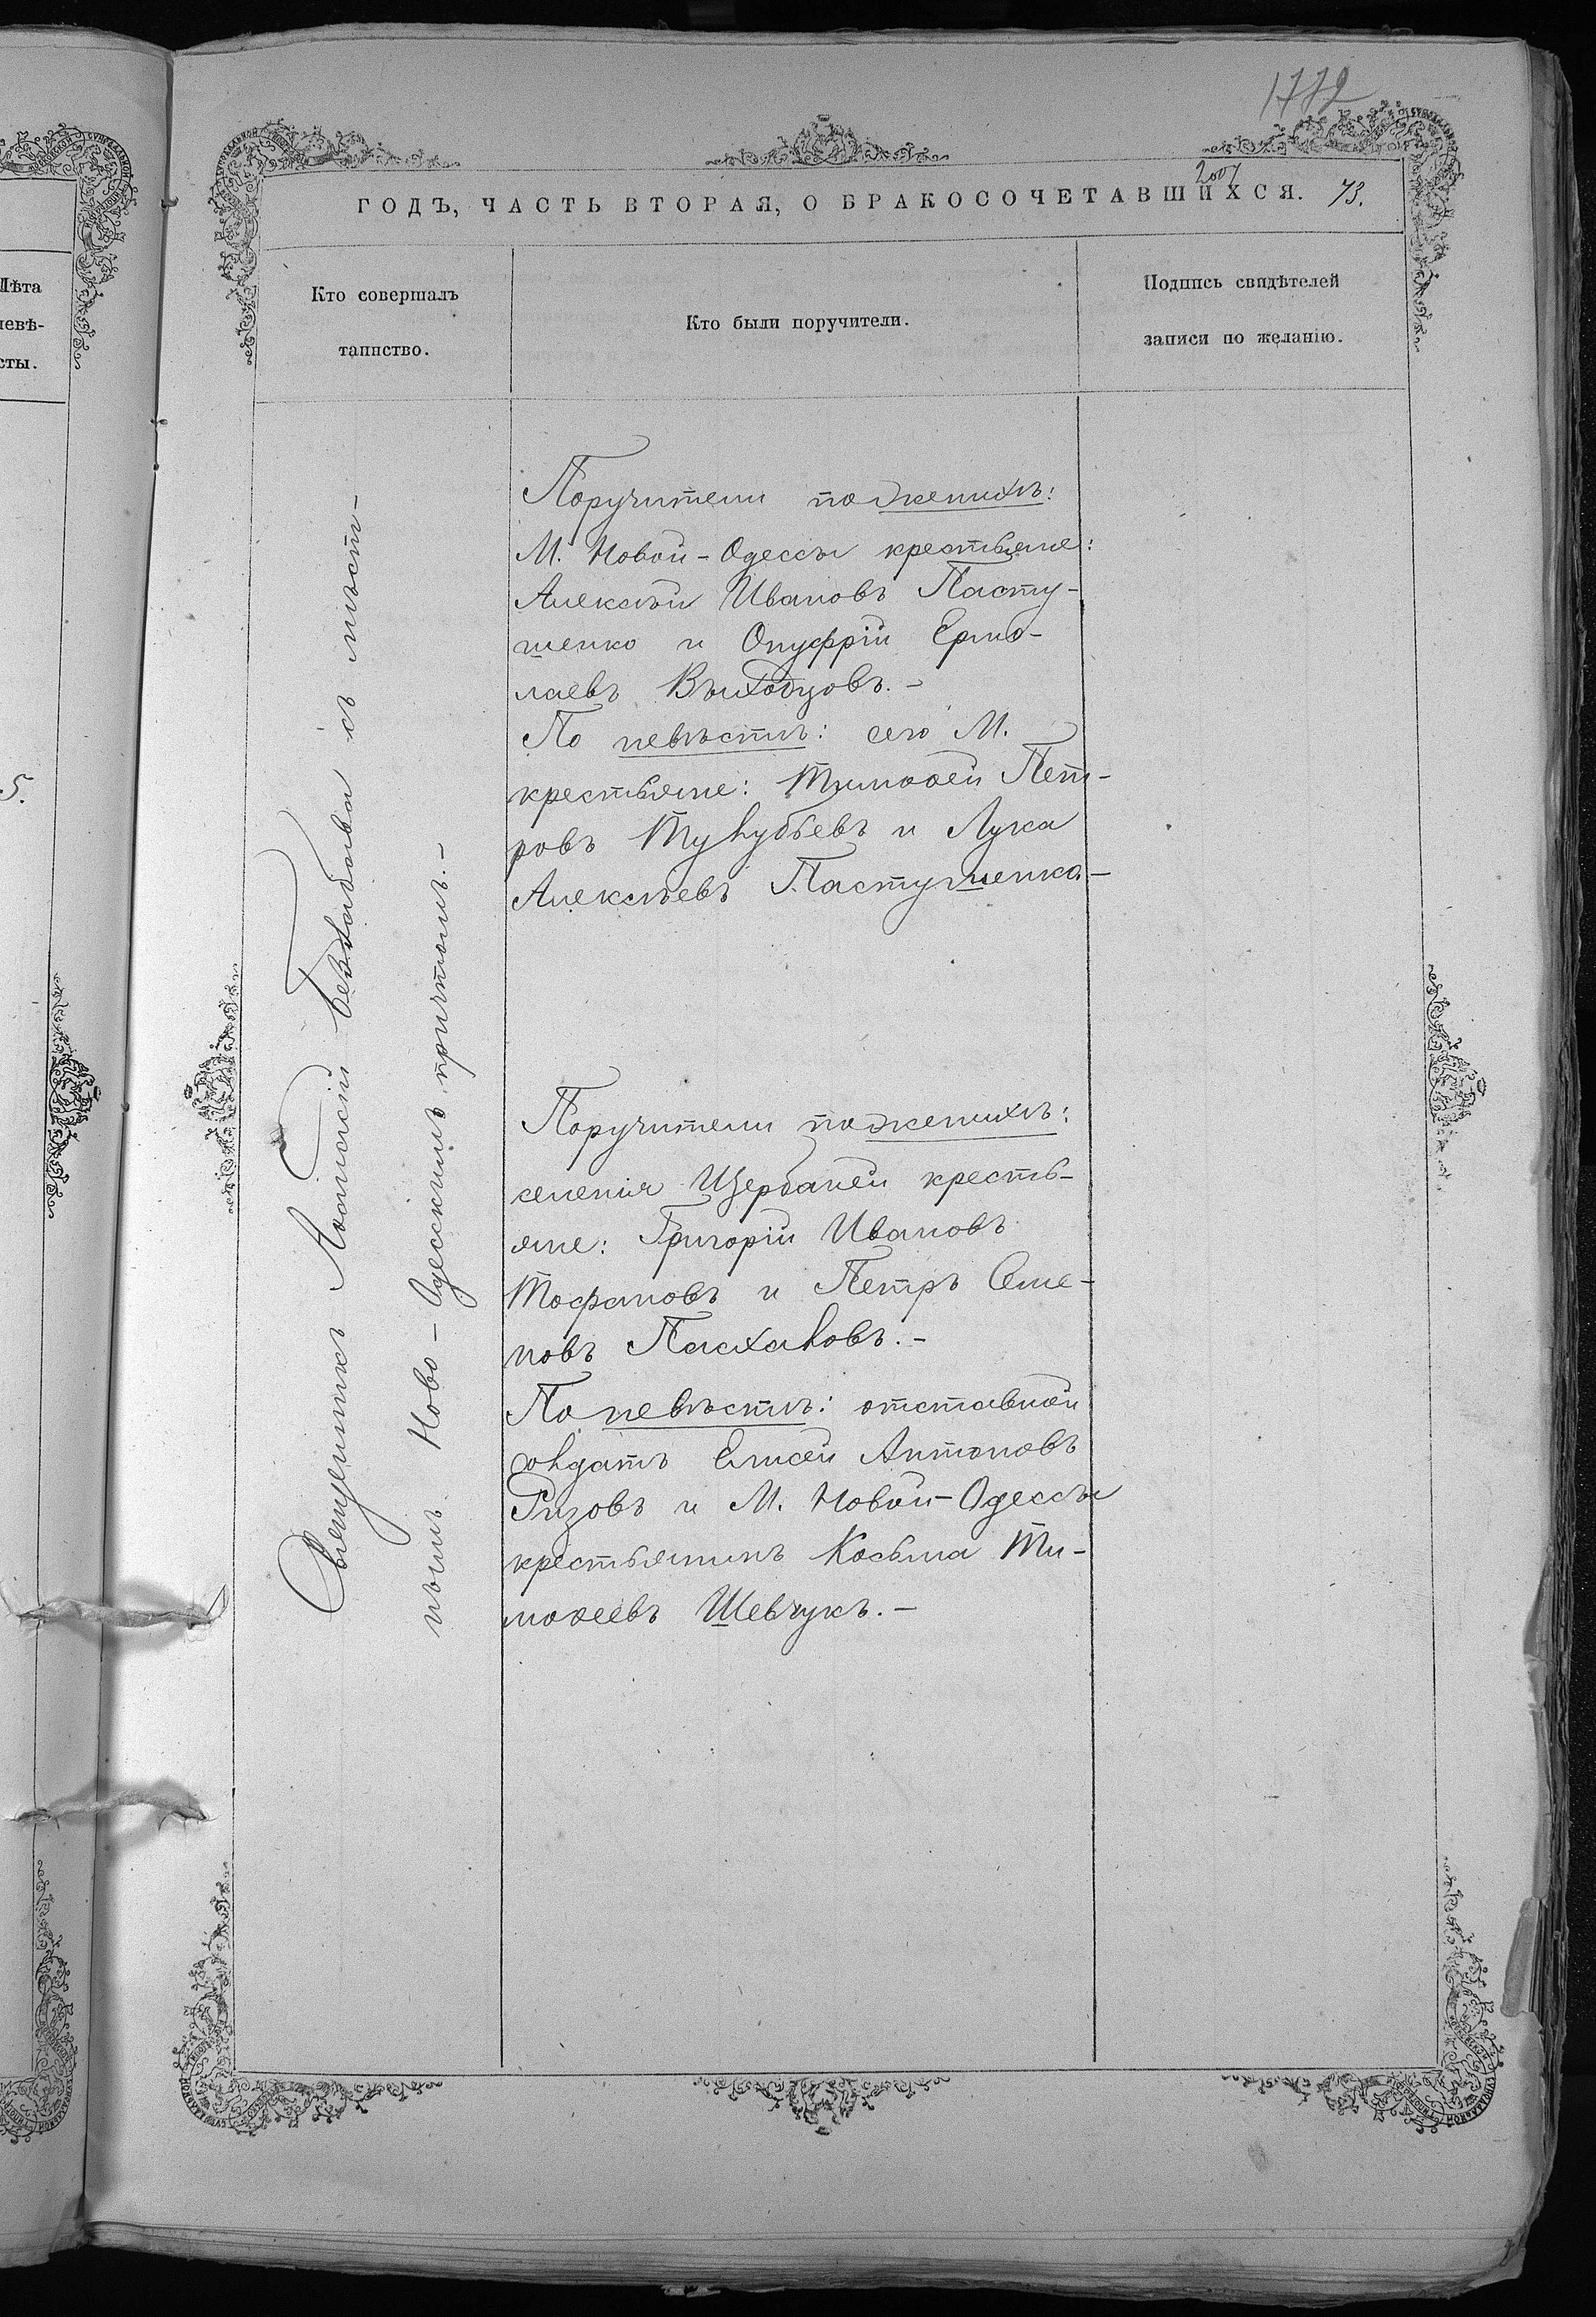 1772
2007
ГОДЪ, ЧАСТЬ ВТОРАЯ, О БРАКОСОЧЕТАВШИХСЯ. 73.
Лѣта
невѣ-
сты.
5.
Кто совершалъ
таинство.
Кто были поручители.
Подпись свидѣтелей
записи по желанію.
Священникъ Ѳеодосій съ мѣст-
нымъ Ново-Одесскимъ причтомъ.-
Поручители по женихѣ:
М. Новой-Одессы крестьяне:
Алексѣй Ивановъ Пасту-
шенко и Онуфрій Ермо-
лаевъ Выходцовъ.-
По невѣстѣ: сего М.
крестьяне: Тимоѳей Пет-
ровъ Тулубьевъ и Лука
Алексѣевъ Пастушенко-
Поручители по женихѣ:
селенія Щербаней кресть-
яне: Григорій Ивановъ
Тофановъ и Петръ Семе-
новъ Пасхаловъ.-
По невѣстѣ: отставной
солдатъ Елисей Антоновъ
Ризовъ и М. Новой-Одессы
крестьянинъ Косьма Ти-
моѳеевъ Шевчукъ.-